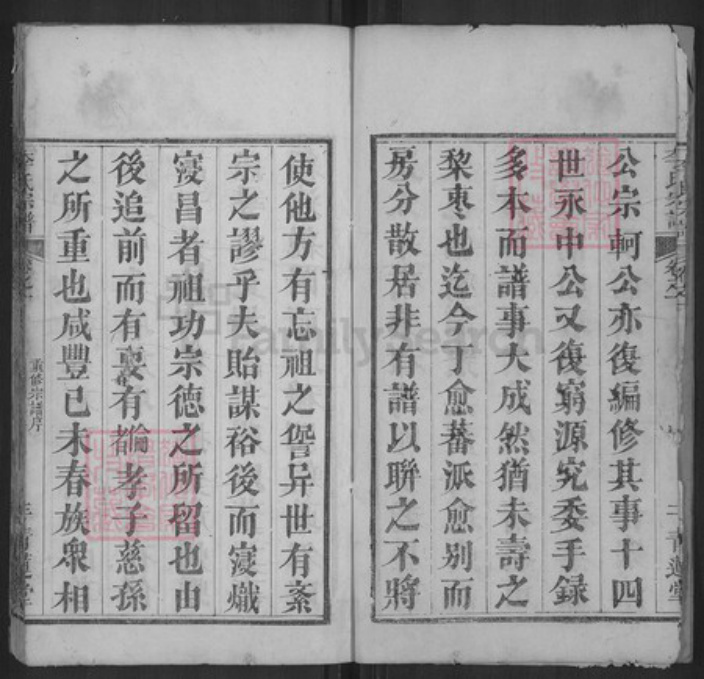 公宗軻公亦復編修其事十四
世永中公又復窮源究委手録
多本而譜事大成然猶未壽之
棃枣也迄今丁愈蕃派愈别而
房分散居非有譜以聨之不將
使他方有忘祖之訾异世有紊
宗之謬乎夫貽謀裕後而寖熾
寖昌者祖功宗德之所留也由
後追前而有裏有倫者孝子慈孫
之所重也咸豐已未春族衆相
重修宗譜序
FamilySearch